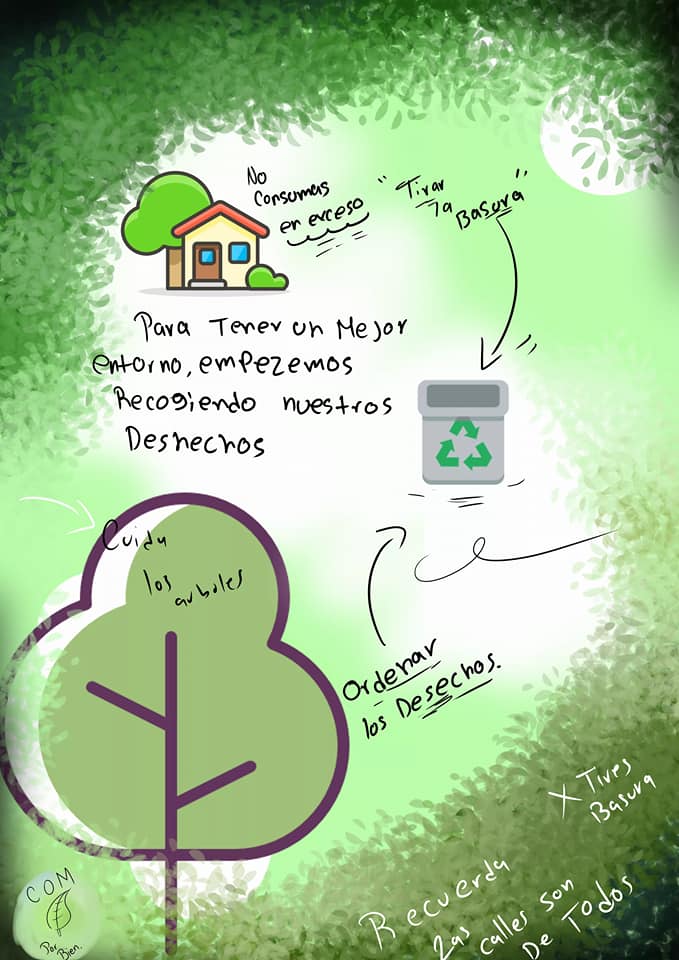 No
Consumas
en exceso
"Tirar
la
Basura"
Para Tener un Mejor
entorno, empezemos
Recogiendo nuestros
Deshechos
Cuida
los
arboles
Ordenar
los Desechos.
X Tires
Basura
Recuerda
Las
calles son
De Todos
COM
Por
Bien.